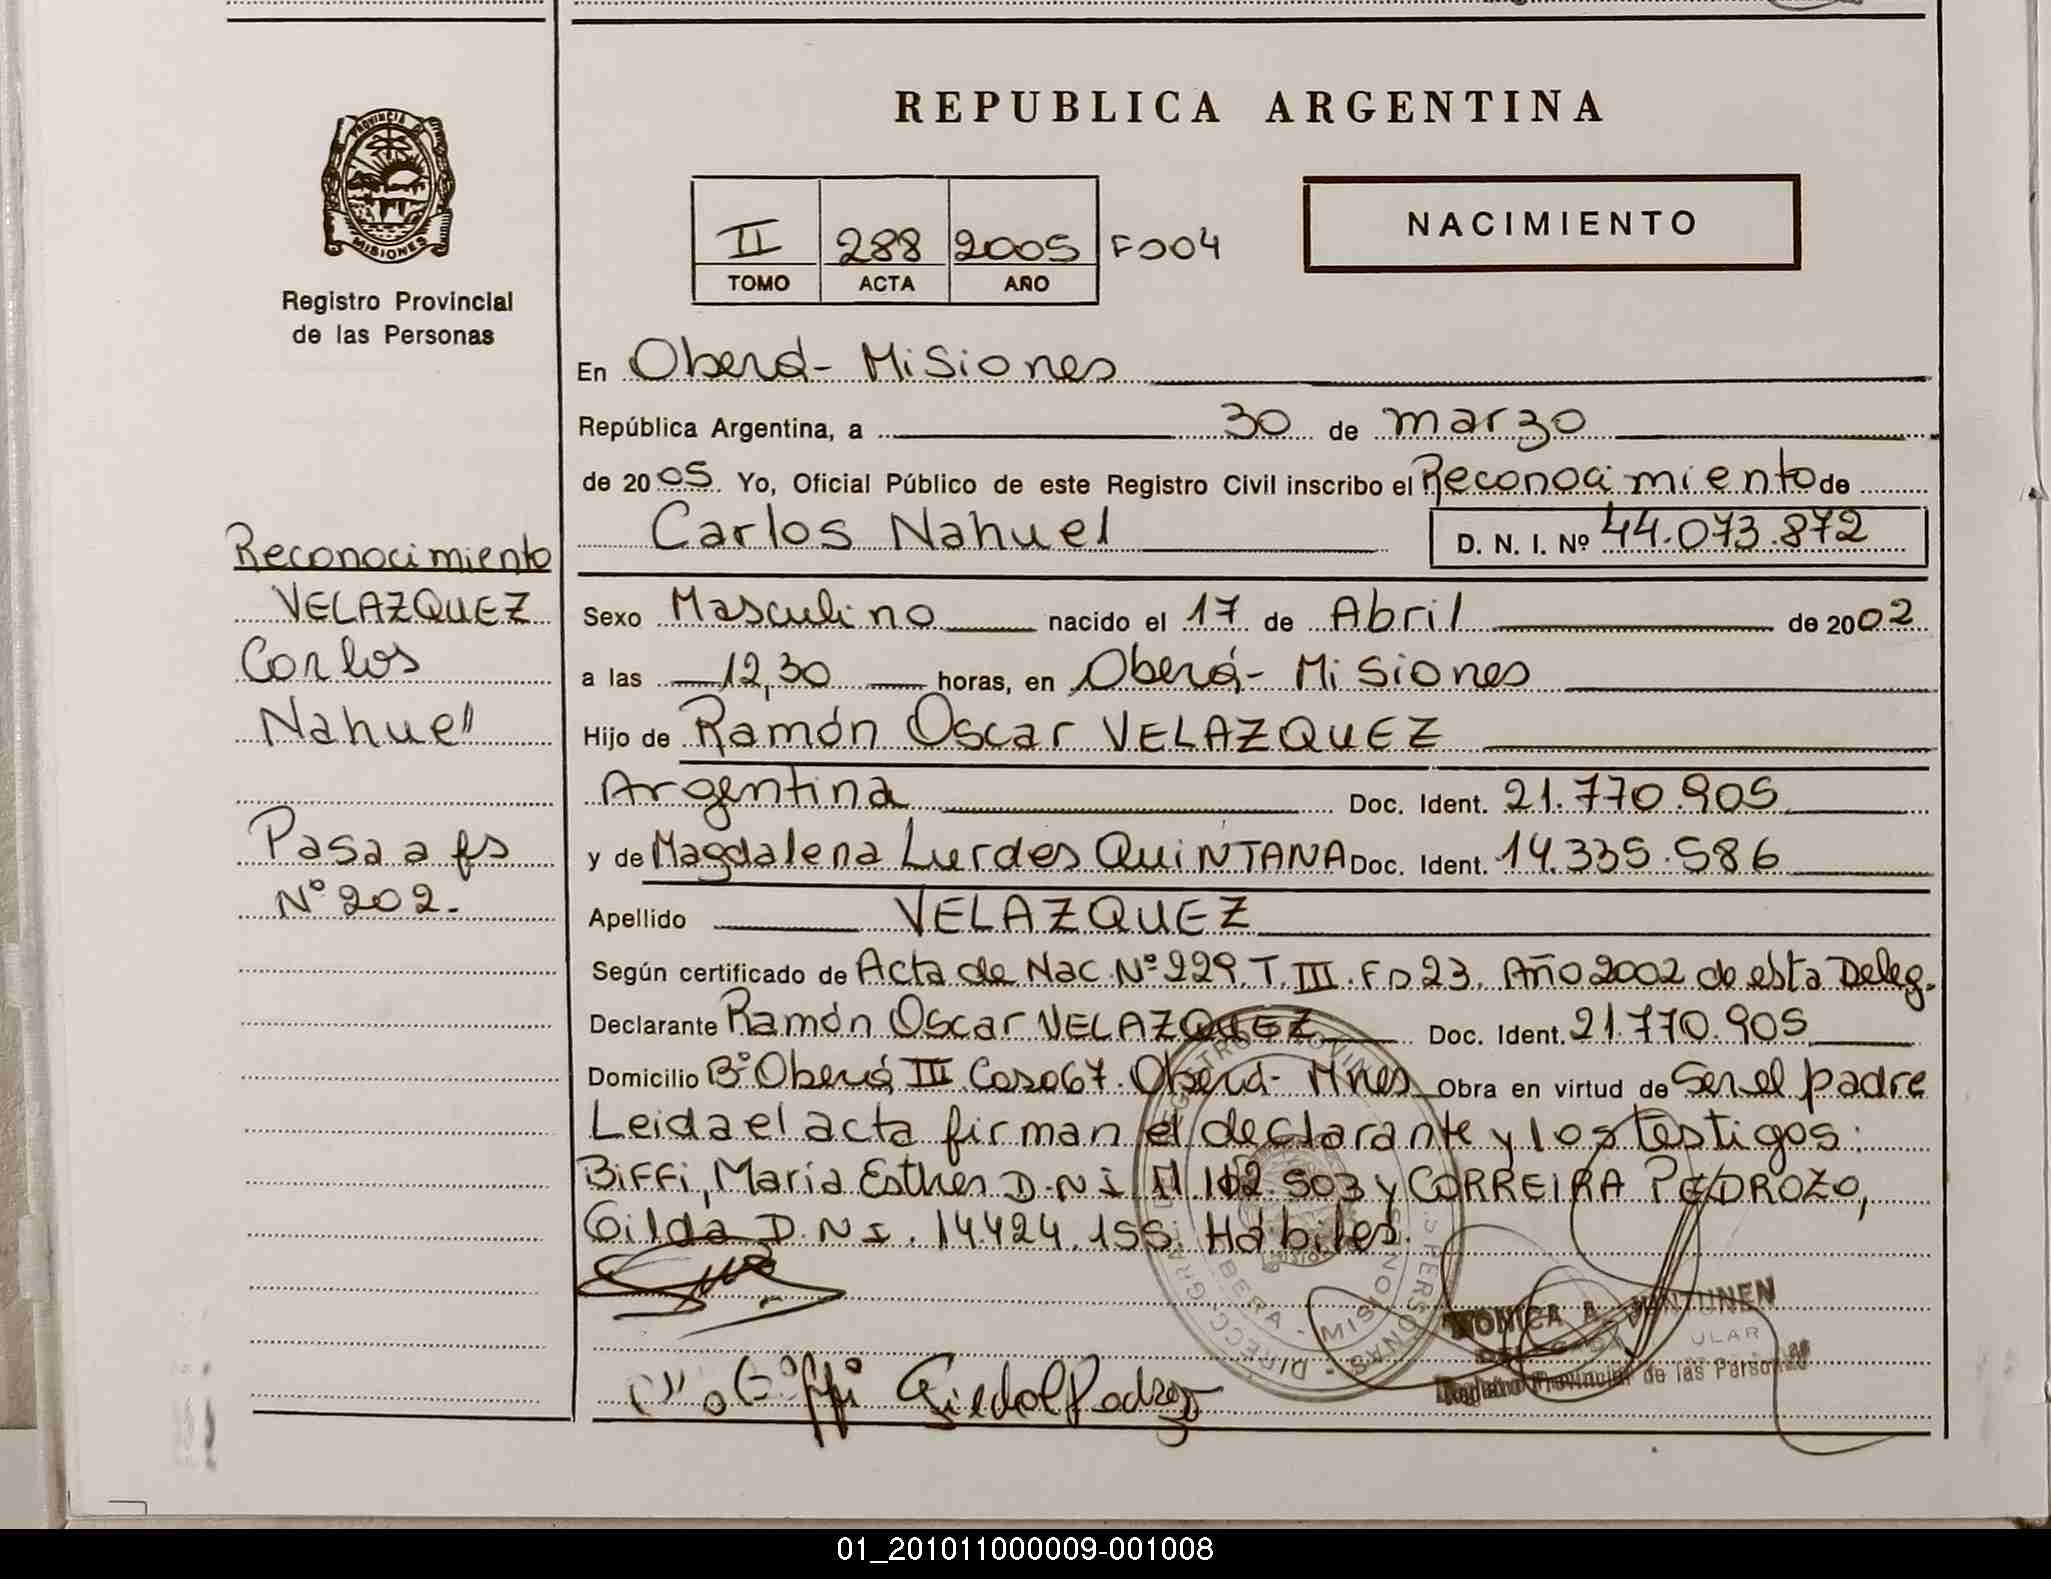 REPUBLICA ARGENTINA
PROVINCIA DE
MISIONES
Registro Provincial
de las Personas
II 288 2005 F004
TOMO ACTA AÑO
NACIMIENTO
En Oberá - Misiones
República Argentina, a 30 de marzo
de 2005 Yo, Oficial Público de este Registro Civil inscribo el Reconocimiento de
Carlos Nahuel D. N. I. Nº 44.073.872
Sexo Masculino nacido el 17 de Abril de 2002
a las 12,30 horas, en Oberá - Misiones
Hijo de Ramón Oscar VELAZQUEZ
Argentina Doc. Ident. 21.770.905
y de Magdalena Lurdes QUINTANA Doc. Ident. 14.335.586
Apellido VELAZQUEZ
Según certificado de Acta de Nac. Nº 229. T. III. Fº 23. Año 2002 de esta Deleg.
Declarante Ramón Oscar VELAZQUEZ Doc. Ident. 21.770.905
Domicilio Bº Oberá III Casa 67. Oberá - Mnes Obra en virtud de Ser el padre
Leida el acta firman el declarante y los testigos:
BiFFi, María Esther D.N.I. 11.102.503 y CORREIRA PEDROZO,
Gilda D.N.I. 14.424.155. Hábiles.
Reconocimiento
VELAZQUEZ
Carlos
Nahuel
Pasa a fs
Nº 202.
OBERA - MISIONES
MONICA A.
Registro Provincial de las Personas
01_201011000009-001008